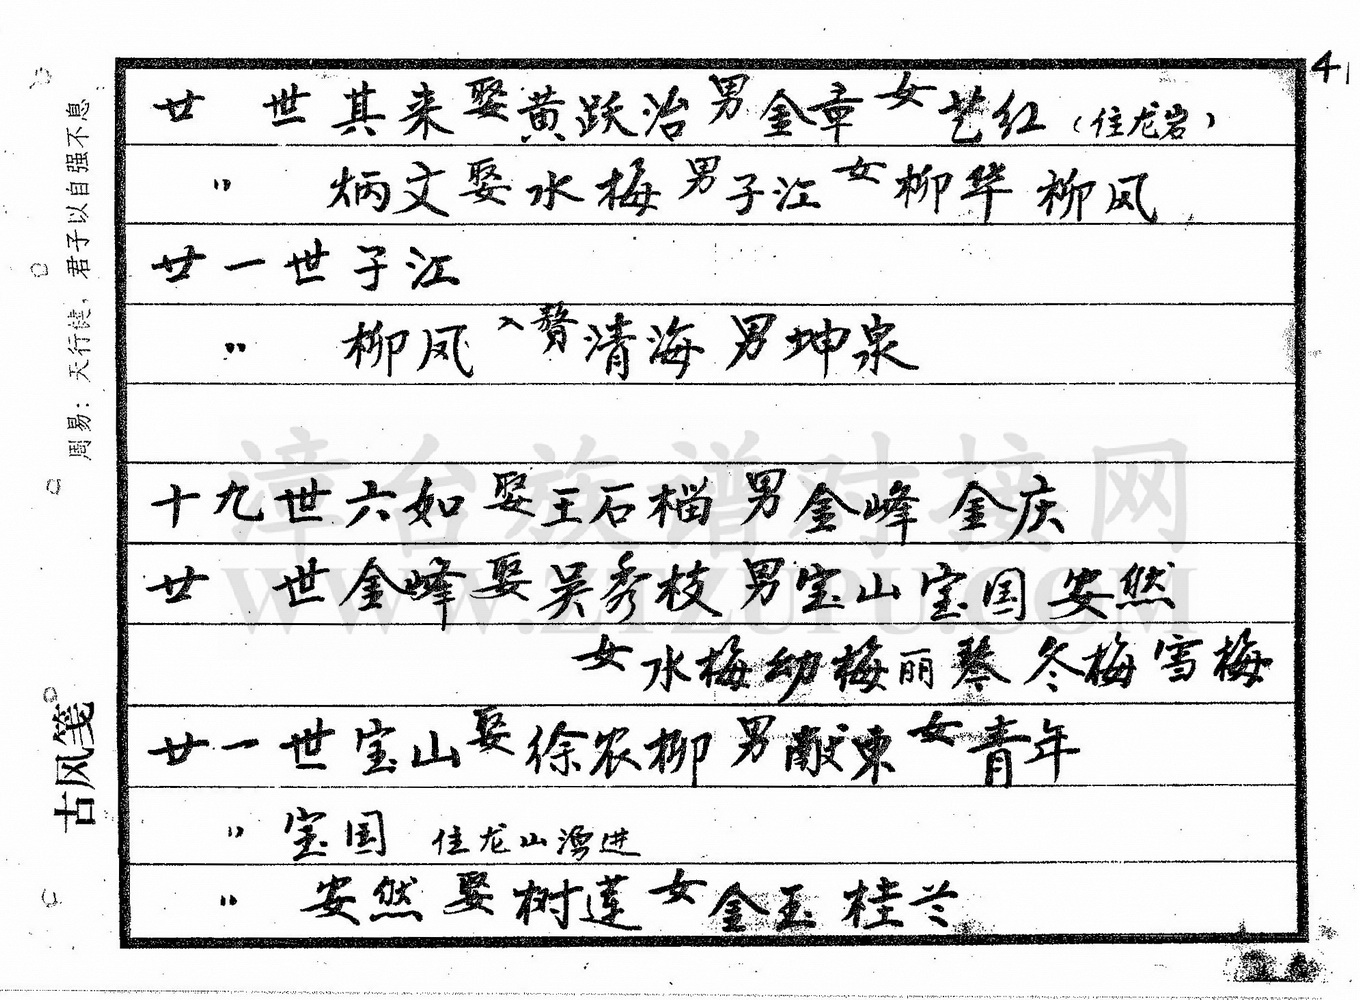 41
廿 世其来娶黄跃治男金章女艺红(住龙岩)
〃 炳文娶水梅男子江女柳华 柳凤
廿一世子江
〃 柳凤入赘清海 男坤泉
十九世六如娶王石榴 男金峰 金庆
廿 世金峰娶吴秀枝 男宝山宝国安然
女水梅幼梅丽琴冬梅雪梅
廿一世宝山娶徐农柳 男献东女青年
〃 宝国 住龙山湧进
〃 安然娶树莲女金玉 桂兰
周易:天行健,君子以自强不息
古风笺
漳台族谱对接网
WWW.ZTZUPU.COM